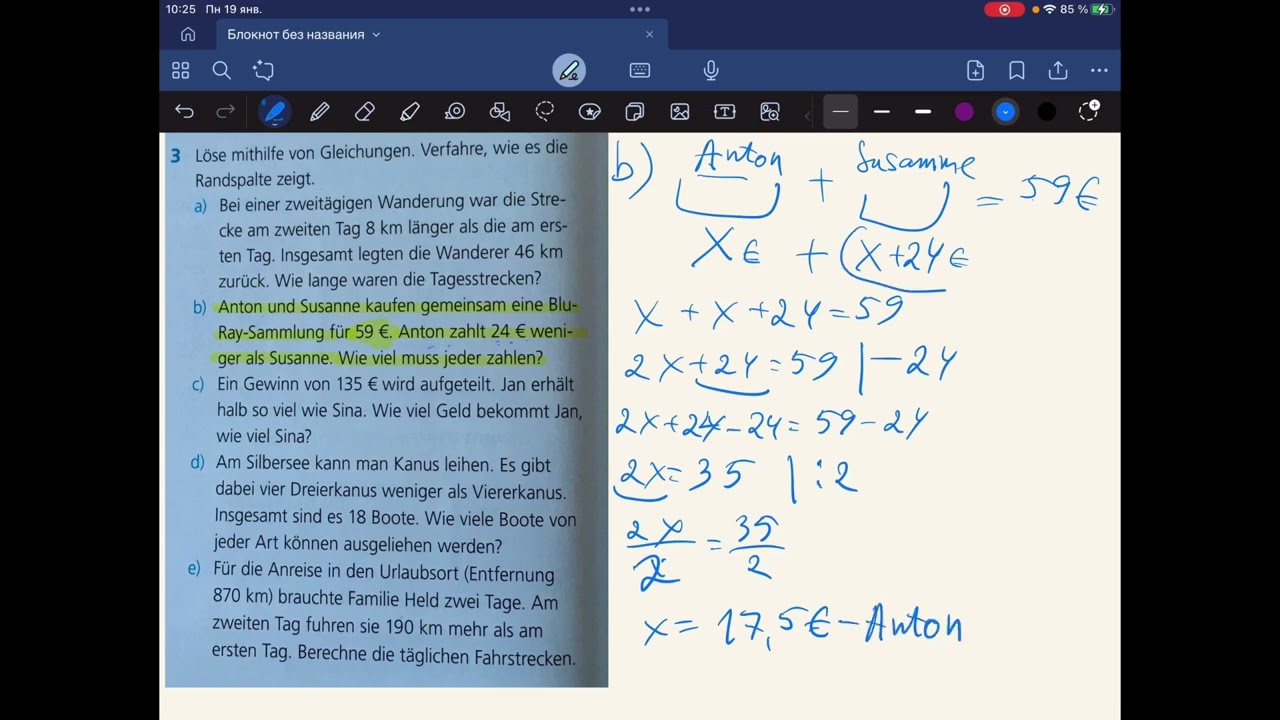 10:25 Пн 19 янв.
85 %
Блокнот без названия
3 Löse mithilfe von Gleichungen. Verfahre, wie es die
Randspalte zeigt.
a) Bei einer zweitägigen Wanderung war die Stre-
cke am zweiten Tag 8 km länger als die am ers-
ten Tag. Insgesamt legten die Wanderer 46 km
zurück. Wie lange waren die Tagesstrecken?
b) Anton und Susanne kaufen gemeinsam eine Blu-
Ray-Sammlung für 59 €. Anton zahlt 24 € weni-
ger als Susanne. Wie viel muss jeder zahlen?
c) Ein Gewinn von 135 € wird aufgeteilt. Jan erhält
halb so viel wie Sina. Wie viel Geld bekommt Jan,
wie viel Sina?
d) Am Silbersee kann man Kanus leihen. Es gibt
dabei vier Dreierkanus weniger als Viererkanus.
Insgesamt sind es 18 Boote. Wie viele Boote von
jeder Art können ausgeliehen werden?
e) Für die Anreise in den Urlaubsort (Entfernung
870 km) brauchte Familie Held zwei Tage. Am
zweiten Tag fuhren sie 190 km mehr als am
ersten Tag. Berechne die täglichen Fahrstrecken.
b) Anton + Susamme = 59€
x€ + (x+24€
x + x + 24 = 59
2x + 24 = 59 | - 24
2x + 24 - 24 = 59 - 24
2x = 35 | : 2
2x/2 = 35/2
x = 17,5€ - Anton